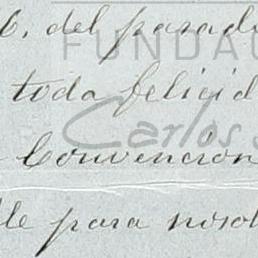 6. del parad
FUNDA
toda felicid
Carlos S
Convención
lle para nosot